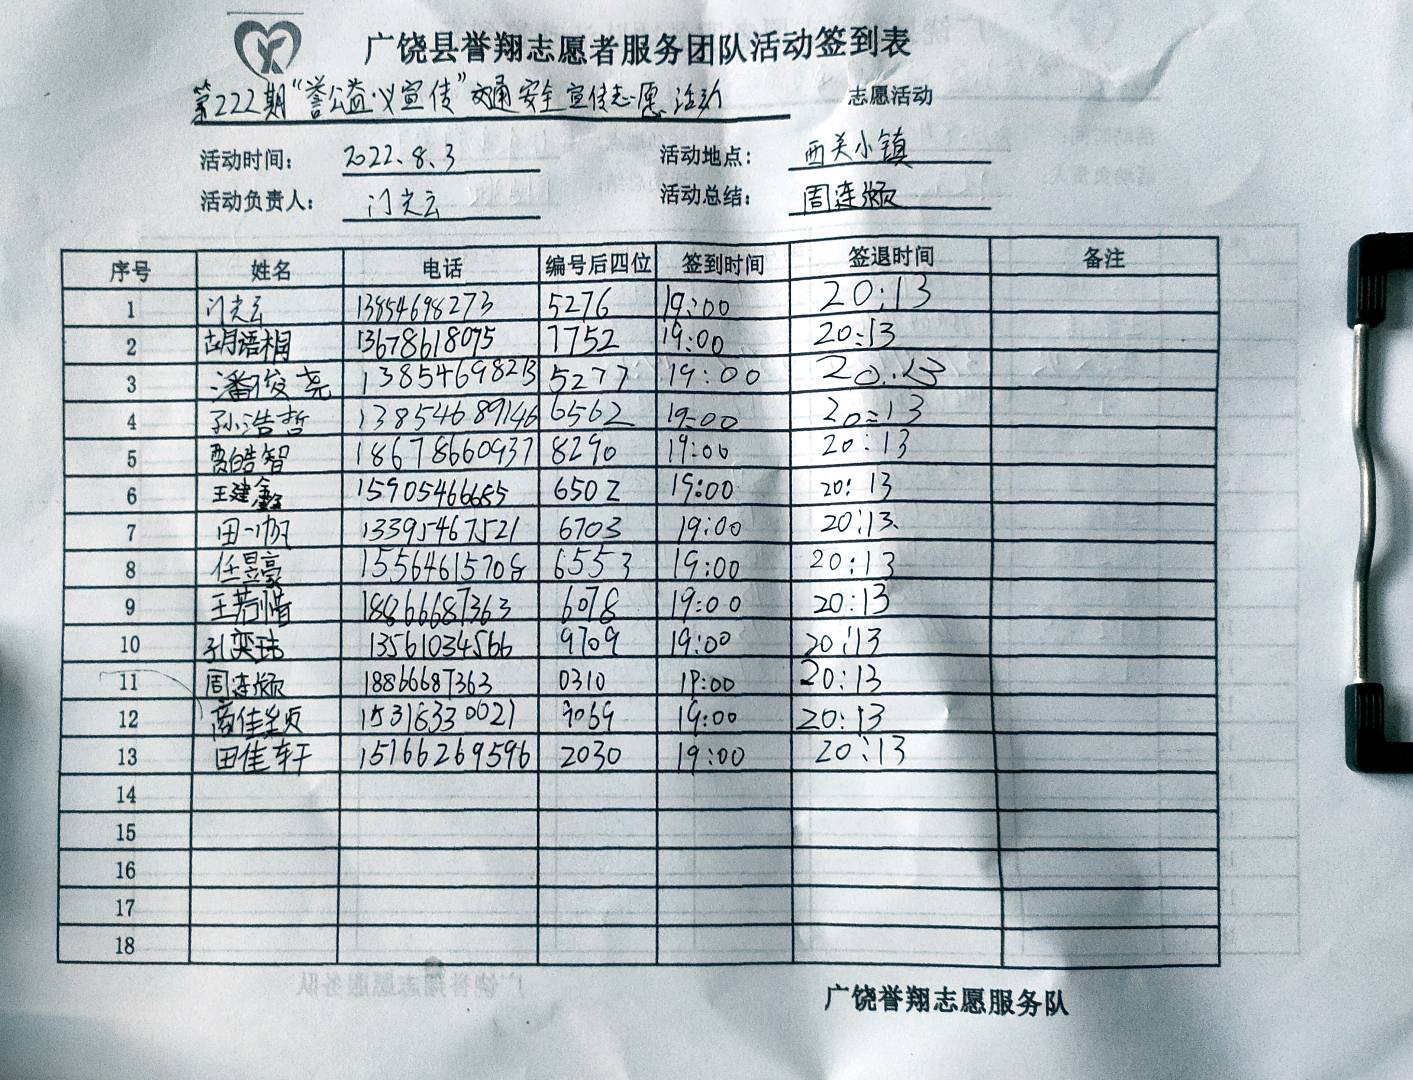 广饶县誉翔志愿者服务团队活动签到表
第222期"誉公益义宣传"交通安全宣传志愿活动 志愿活动
活动时间： 2022.8.3 活动地点： 西关小镇
活动负责人： 门光云 活动总结： 周连顺
序号 姓名 电话 编号后四位 签到时间 签退时间 备注
1 门光云 13854698273 5276 19:00 20:13
2 胡语桐 13678618075 7752 19:00 20:13
3 潘俊尧 13854698213 5277 19:00 20:13
4 孙浩哲 13854689146 6562 19:00 20:13
5 贾皓智 18678660937 8290 19:00 20:13
6 王建鑫 15905466685 6502 19:00 20:13
7 田一帆 13395467521 6703 19:00 20:13
8 任昱豪 15564615708 6553 19:00 20:13
9 王若惜 18866687363 6078 19:00 20:13
10 孔奕玮 13561034566 9709 19:00 20:13
11 周连顺 18866687363 0310 19:00 20:13
12 15316330021 9069 19:00 20:13
13 田佳轩 15166269596 2030 19:00 20:13
14
15
16
17
18
广饶誉翔志愿服务队